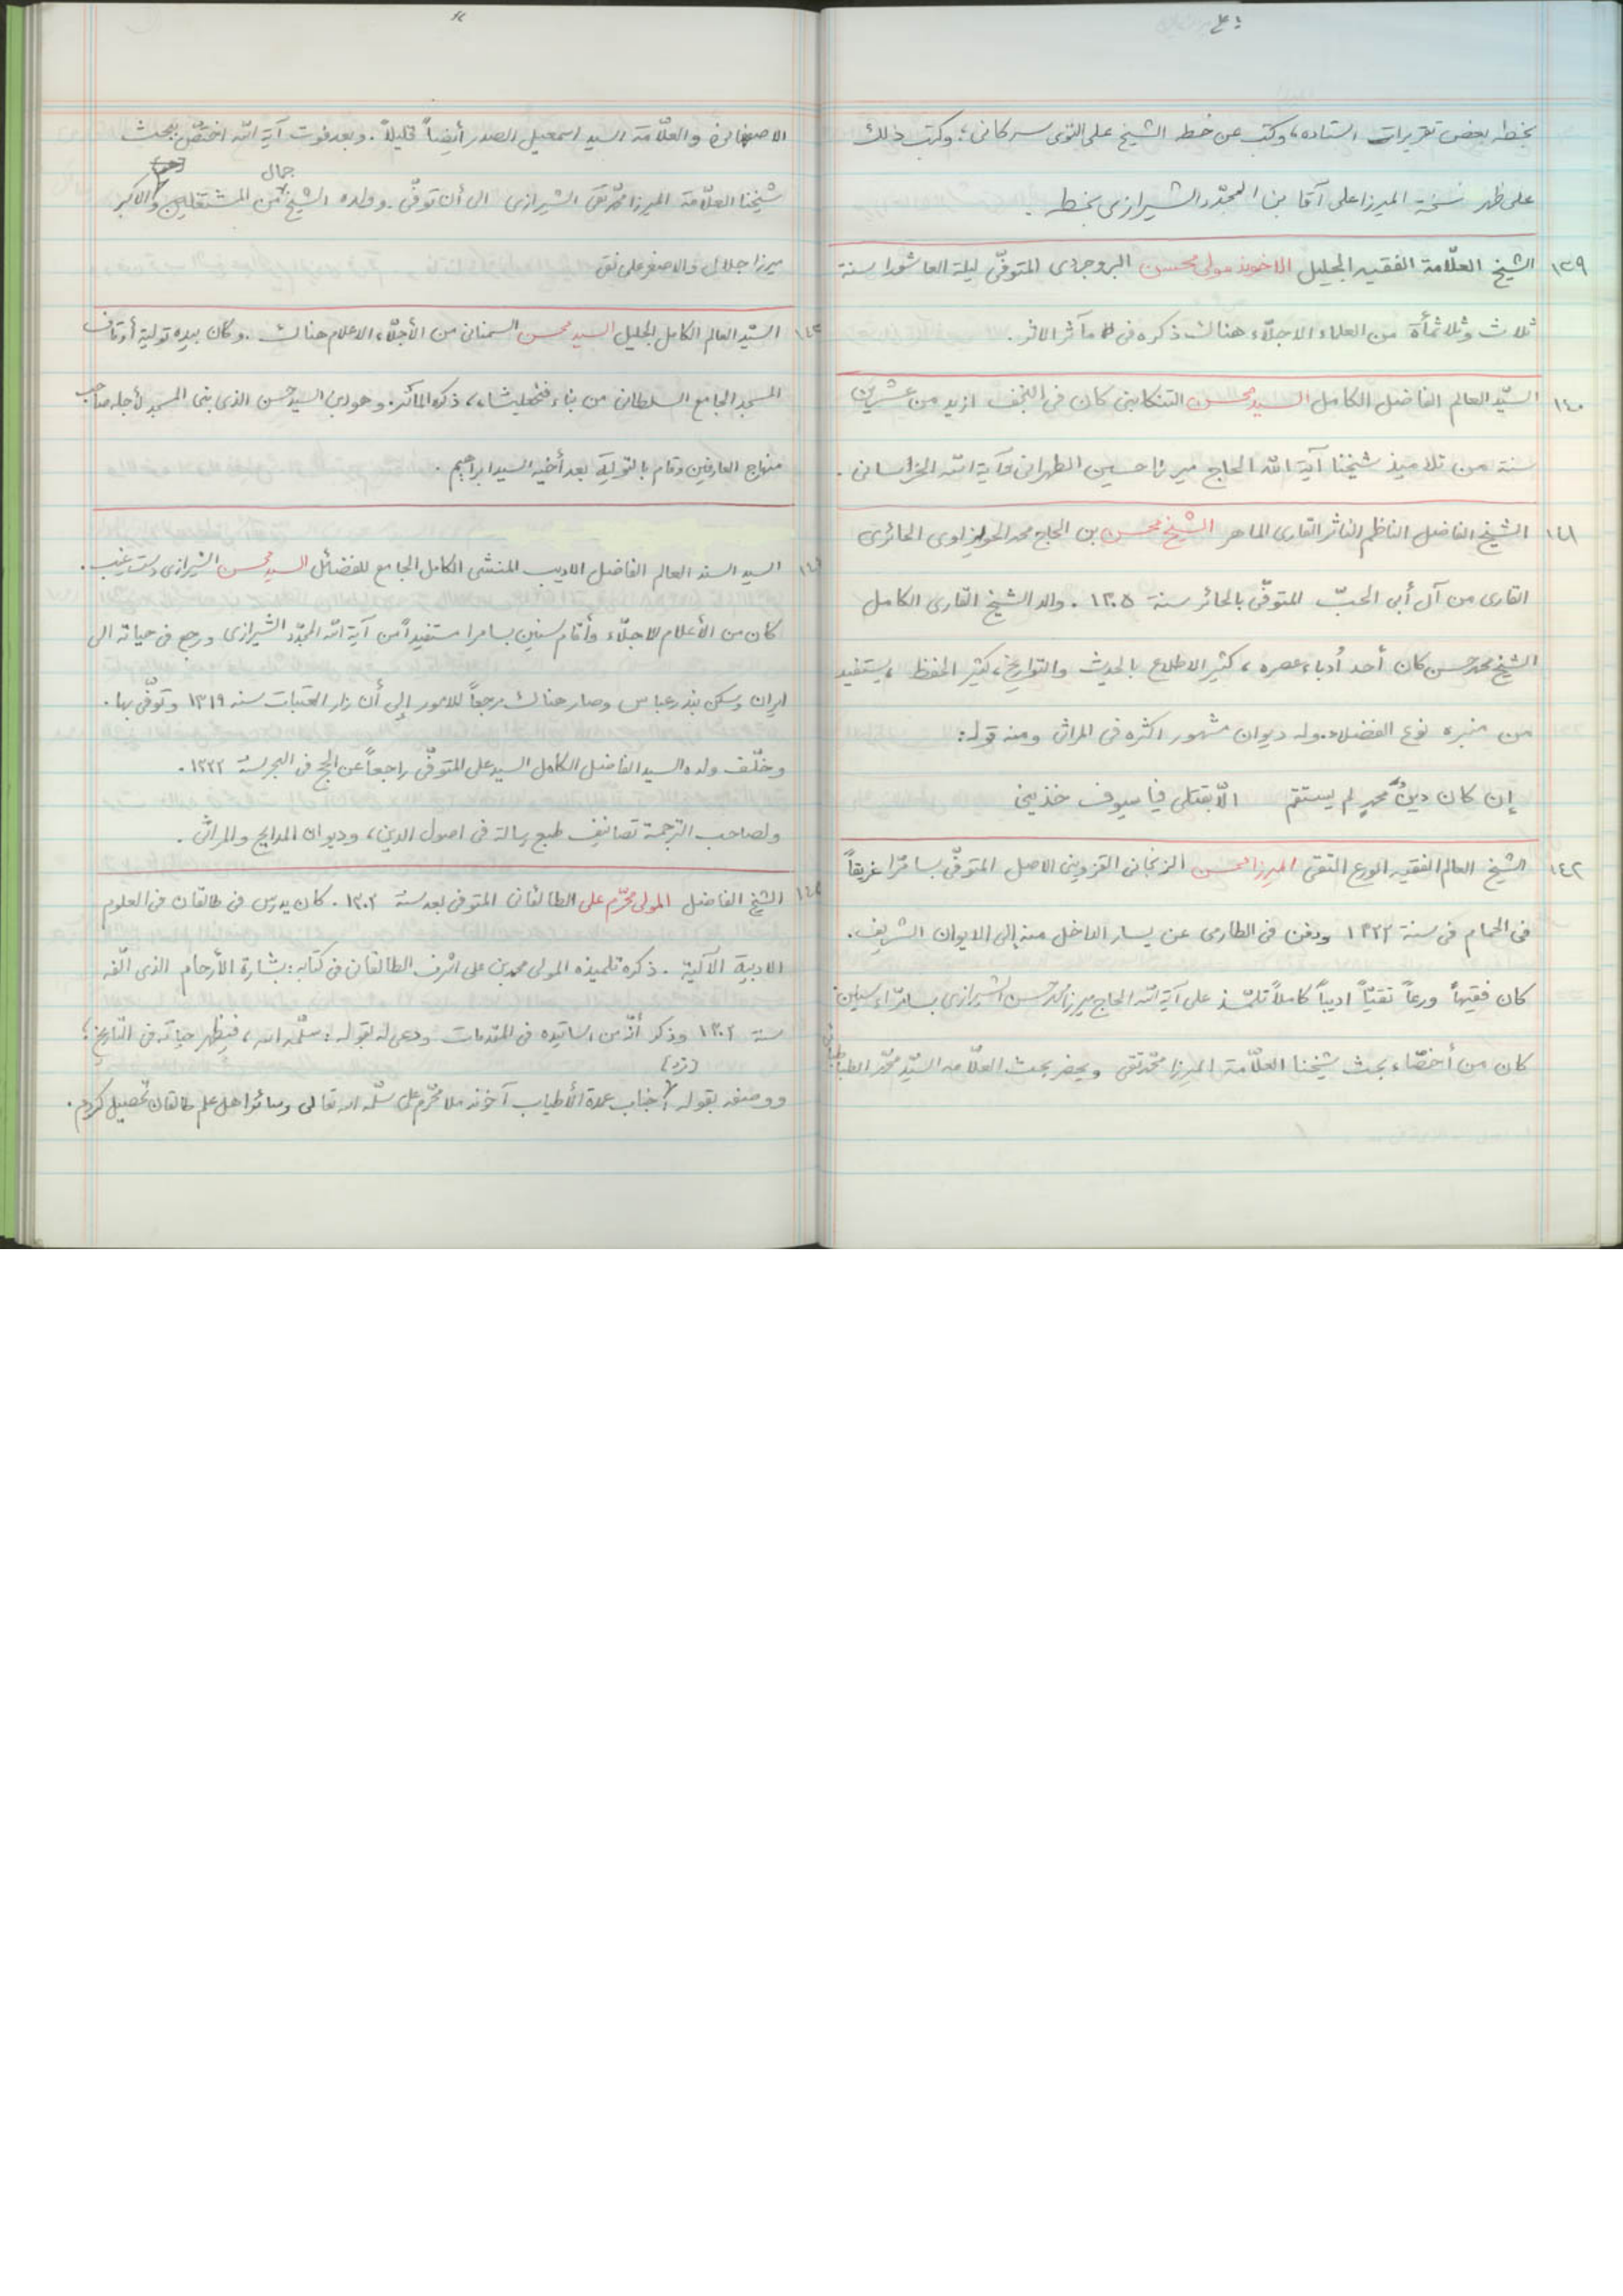 بخطه بعض تقريرات استاده، وكتب عن خط الشيخ على التوى سركانى؛ وكتب ذلك
على ظهر نسخة الميرزا على آقا بن المجدّد الشيرازى بخطه.
١٣٩ الشيخ العلّامة الفقيه الجليل الاخوند مولى محسن البروجردى المتوفّى ليلة العاشورا سنة
ثلاث وثلاثمأة من العلماء الاجلّاء هناك ذكره فى مآثر الاثر.
١٤٠ السيّد العالم الفاضل الكامل السيد محسن التنكابنى كان فى النجف ازيد من عشرين
سنة من تلاميذ شيخنا آية الله الحاج ميرزا حسين الطهرانى وآية الله الخراسانى.
١٤١ الشيخ الفاضل الناظم الناثر القارى الماهر الشيخ محسن بن الحاج محمد الحويزاوى الحائرى
القارى من آل أبى الحبّ المتوفّى بالحائر سنة ١٣٠٥. والد الشيخ القارى الكامل
الشيخ محمد حسن كان أحد أدباء عصره، كثير الاطلاع بالحديث والتواريخ، كثير الحفظ، يستفيد
من منبره نوع الفضلاء. وله ديوان مشهور اكثره فى المراثى ومنه قوله:
إن كان دينُ محمدٍ لم يستقم الّا بقتلى فيا سيوف خذينى
١٤٢ الشيخ العالم الفقيه الورع التقى الميرزا محسن الزنجانى القزوينى الاصل المتوفّى بسامرّا غريقاً
فى الحمام فى سنة ١٣٢٢ ودفن فى الطارى عن يسار الداخل منه إلى الايوان الشريف.
كان فقيهاً ورعاً تقيّاً اديباً كاملاً تلمّذ على آية الله الحاج ميرزا محمد حسن الشيرازى بسامرّاء سنين
كان من أخصّاء بحث شيخنا العلّامة الميرزا محمّد تقى ويحضر بحث العلّامه السيّد محمّد الطباطبائى
الاصفهانى والعلّامة السيد اسمعيل الصدر أيضاً قليلاً. وبعد فوت آية الله اختصّ ببحث
شيخنا العلّامة الميرزا محمّد تقى الشيرازى الى أن توفّى. وولده الشيخ جمال من المشتغلين والاكبر
ميرزا جلال والاصغر على نقى
١٤٣ السيّد العالم الكامل الجليل السيد محسن السمنانى من الأجلّاء الاعلام هناك. وكان بيده تولية أوقاف
المسجد الجامع السلطانى من بناء فتحعليشاه، ذكره المآثر. وهو ابن السيد حسن الذى بنى المسجد لأجله صاحب
منهاج العارفين وقام بالتولية بعد أخيه السيد ابراهيم.
السيد السند العالم الفاضل الاديب المنشى الكامل الجامع للفضائل السيد محسن الشيرازى دست غيب.
كان من الأعلام الاجلّاء وأقام سنين بسامرا مستفيداً من آية الله المجدّد الشيرازى ورجع فى حياته الى
ايران وسكن بندر عباس وصار هناك مرجعاً للامور إلى أن زار العتبات سنه ١٣١٩ وتوفّى بها.
وخلّف ولده السيد الفاضل الكامل السيد على المتوفّى راجعاً عن الحج فى البحر سنة ١٣٢٢.
ولصاحب الترجمة تصانيف طبع رسالة فى اصول الدين، وديوان المدايح والمراثى.
الشيخ الفاضل المولى محرّم على الطالقانى المتوفى بعد سنة ١٣٠٢. كان يدرس فى طالقان فى العلوم
الادبية الآلية. ذكره تلميذه المولى محمد بن على اشرف الطالقانى فى كتابه: بشارة الأرحام الذى الّفه
سنة ١٣٠٢ وذكر أنّه من اساتيده فى المقدمات ودعى له بقوله: سلّمه الله، فيظهر حياته فى التّاريخ؛
ووصفه بقوله: (نزد) جناب عمدة الأطياب آخوند ملا محرّم على سلّمه الله تعالى وسائر اهل علم طالقان تحصيل كردم.